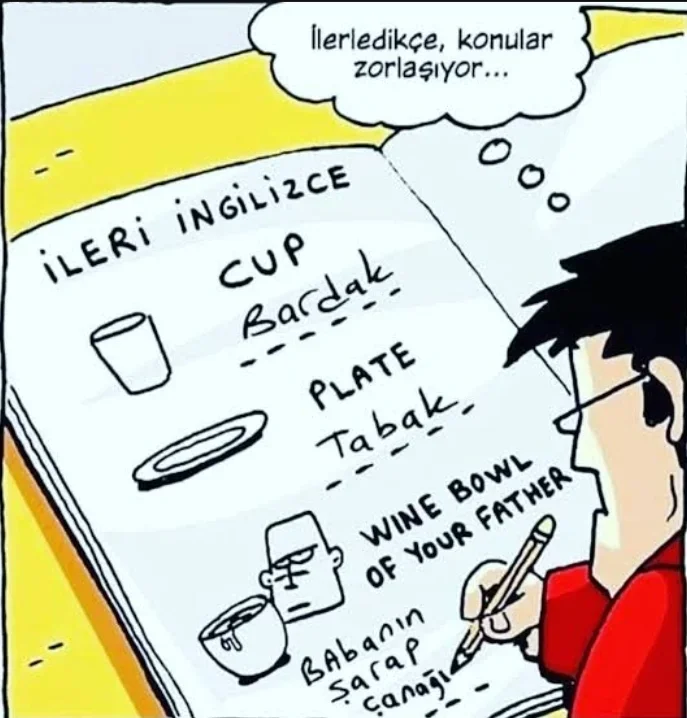 İlerledikçe, konular
zorlaşıyor...
İLERİ İNGİLİZCE
CUP
Bardak
PLATE
Tabak
WINE BOWL
OF YOUR FATHER
BAbanın
Şarap
Çanağı